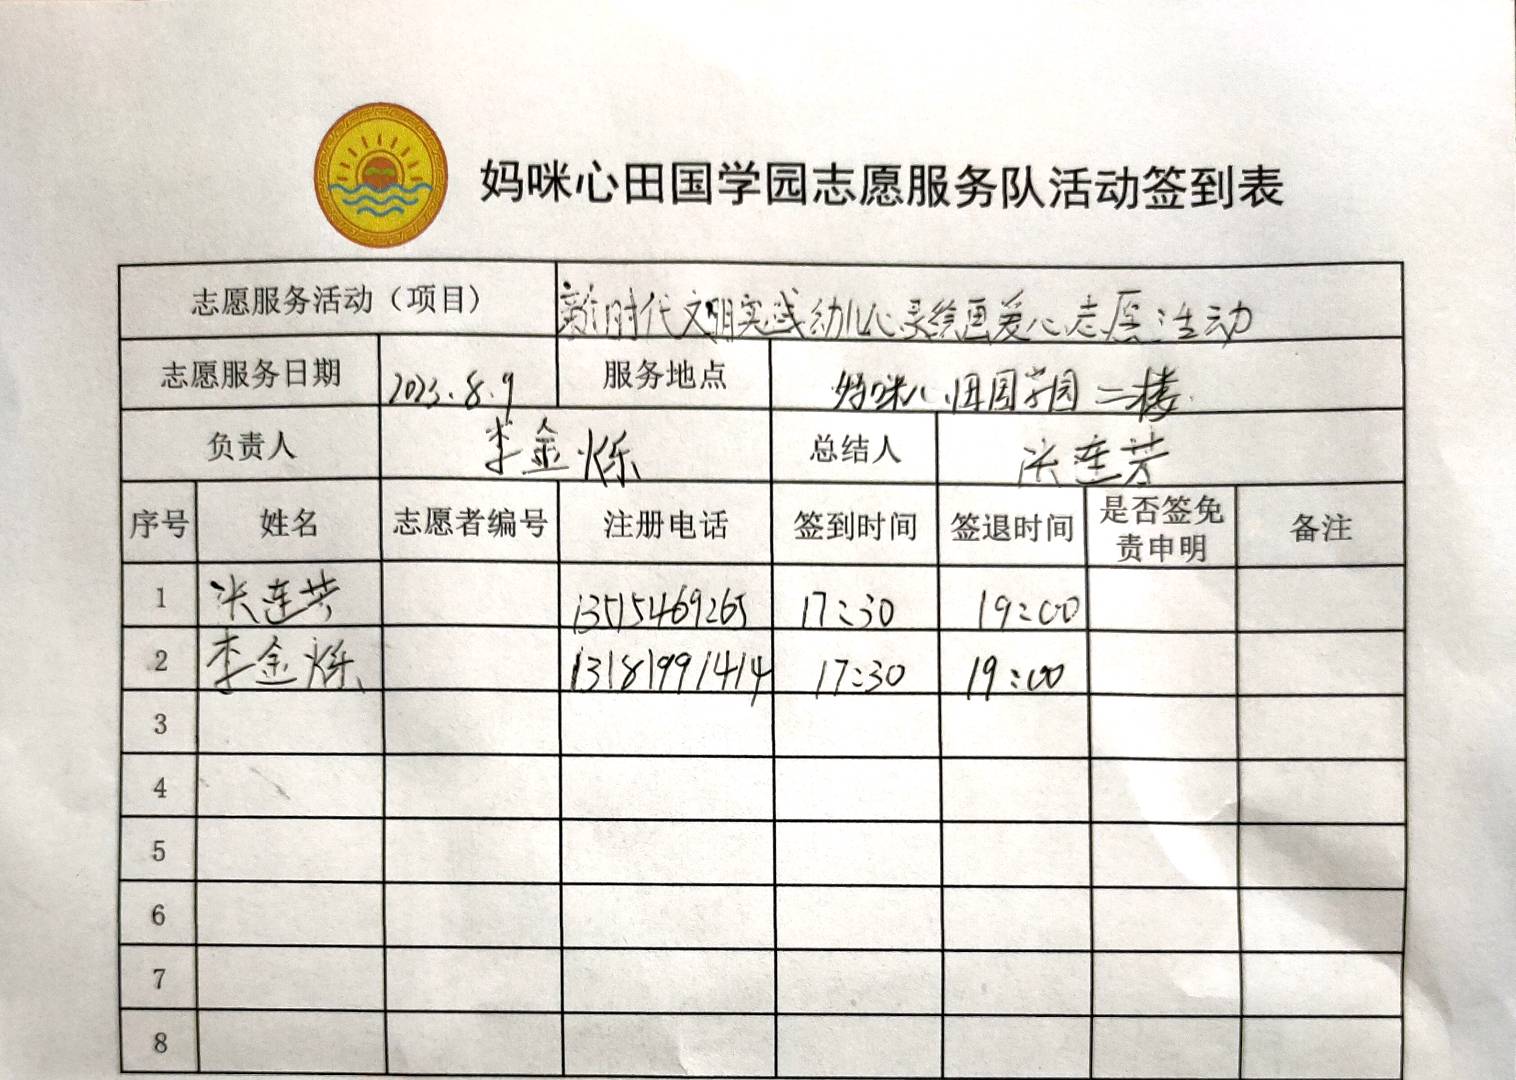 妈咪心田国学园志愿服务队活动签到表
志愿服务活动（项目） 新时代文明实践幼儿心灵绘画爱心志愿活动
志愿服务日期 2023.8.9 服务地点 妈咪心田国学园二楼
负责人 李金烁 总结人 张连芳
序号 姓名 志愿者编号 注册电话 签到时间 签退时间 是否签免责申明 备注
1 张连芳 13515469265 17:30 19:00
2 李金烁 13181991414 17:30 19:00
3
4
5
6
7
8